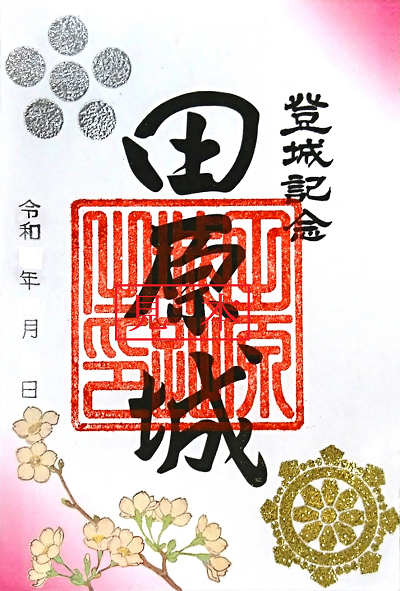 登城記念
田原城
見本
令和 年 月 日